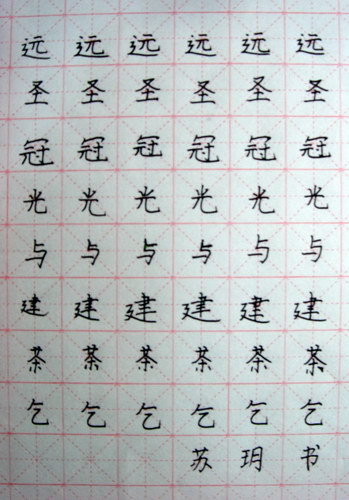 远远远远远远
圣圣圣圣圣圣
冠冠冠冠冠冠
光光光光光光
与与与与与与
建建建建建建
茶茶茶茶茶茶
乞乞乞乞乞乞
苏玥书